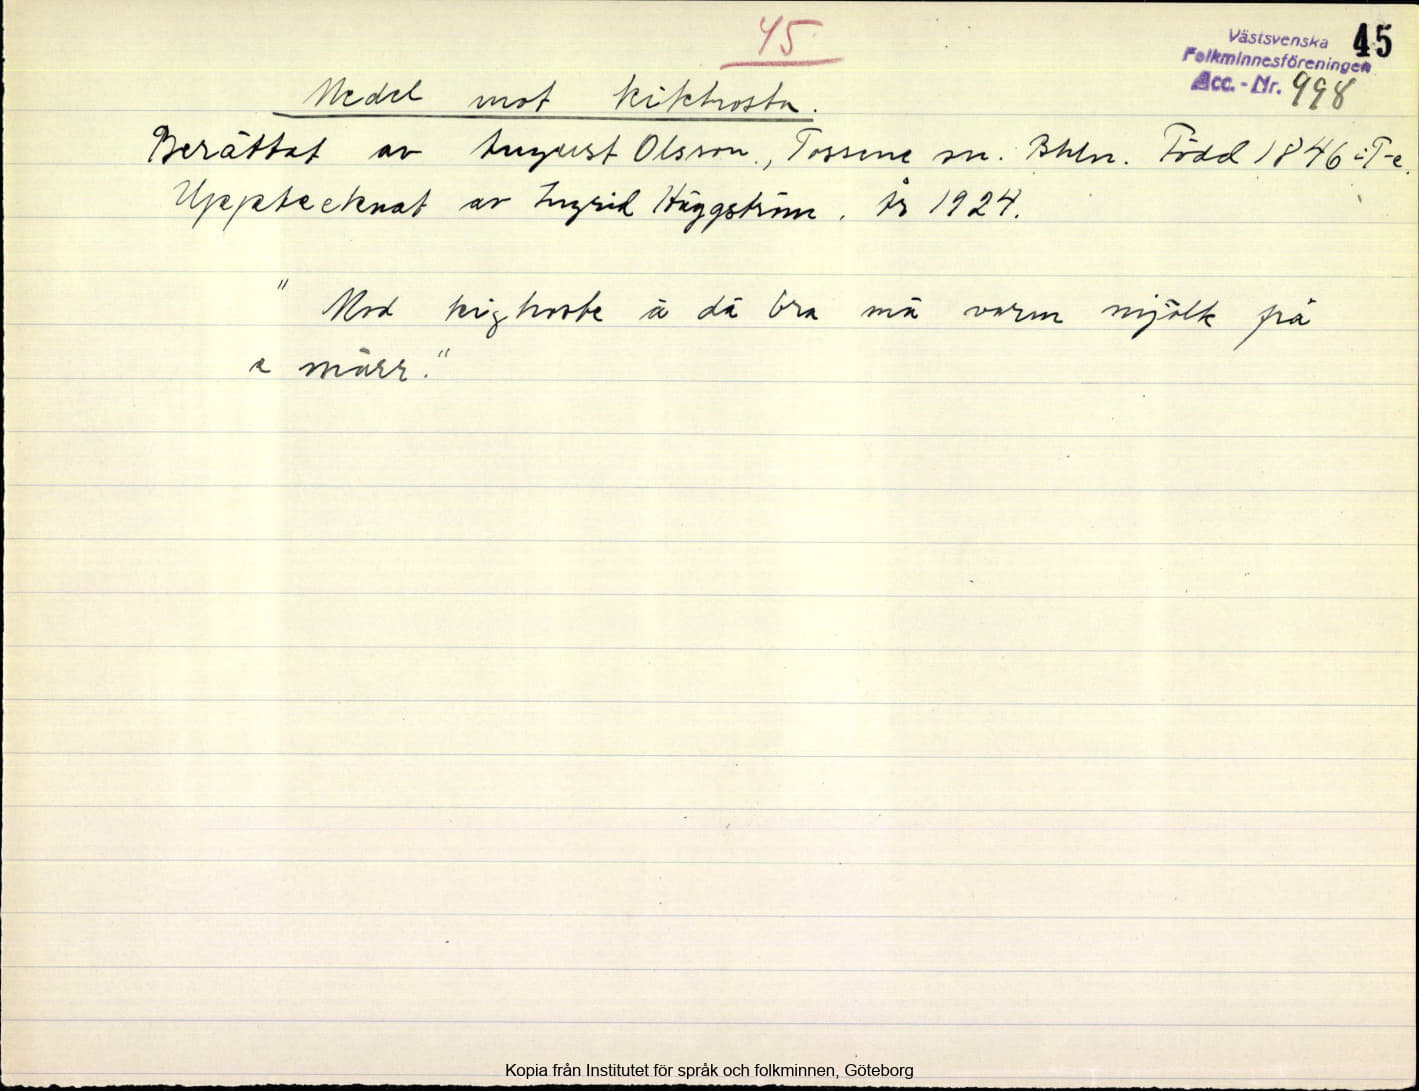 45
Västsvenska 45
Folkminnesföreningen
Acc.-Nr. 998
Medel mot kikhosta.
Berättat av August Olsson, Tossene sn. Bhln. Född 1846 i T-e.
Upptecknat av Ingrid Häggström. år 1924.
" Mod kighoste ä dä bra mä varm mjölk frå
e märr."
Kopia från Institutet för språk och folkminnen, Göteborg